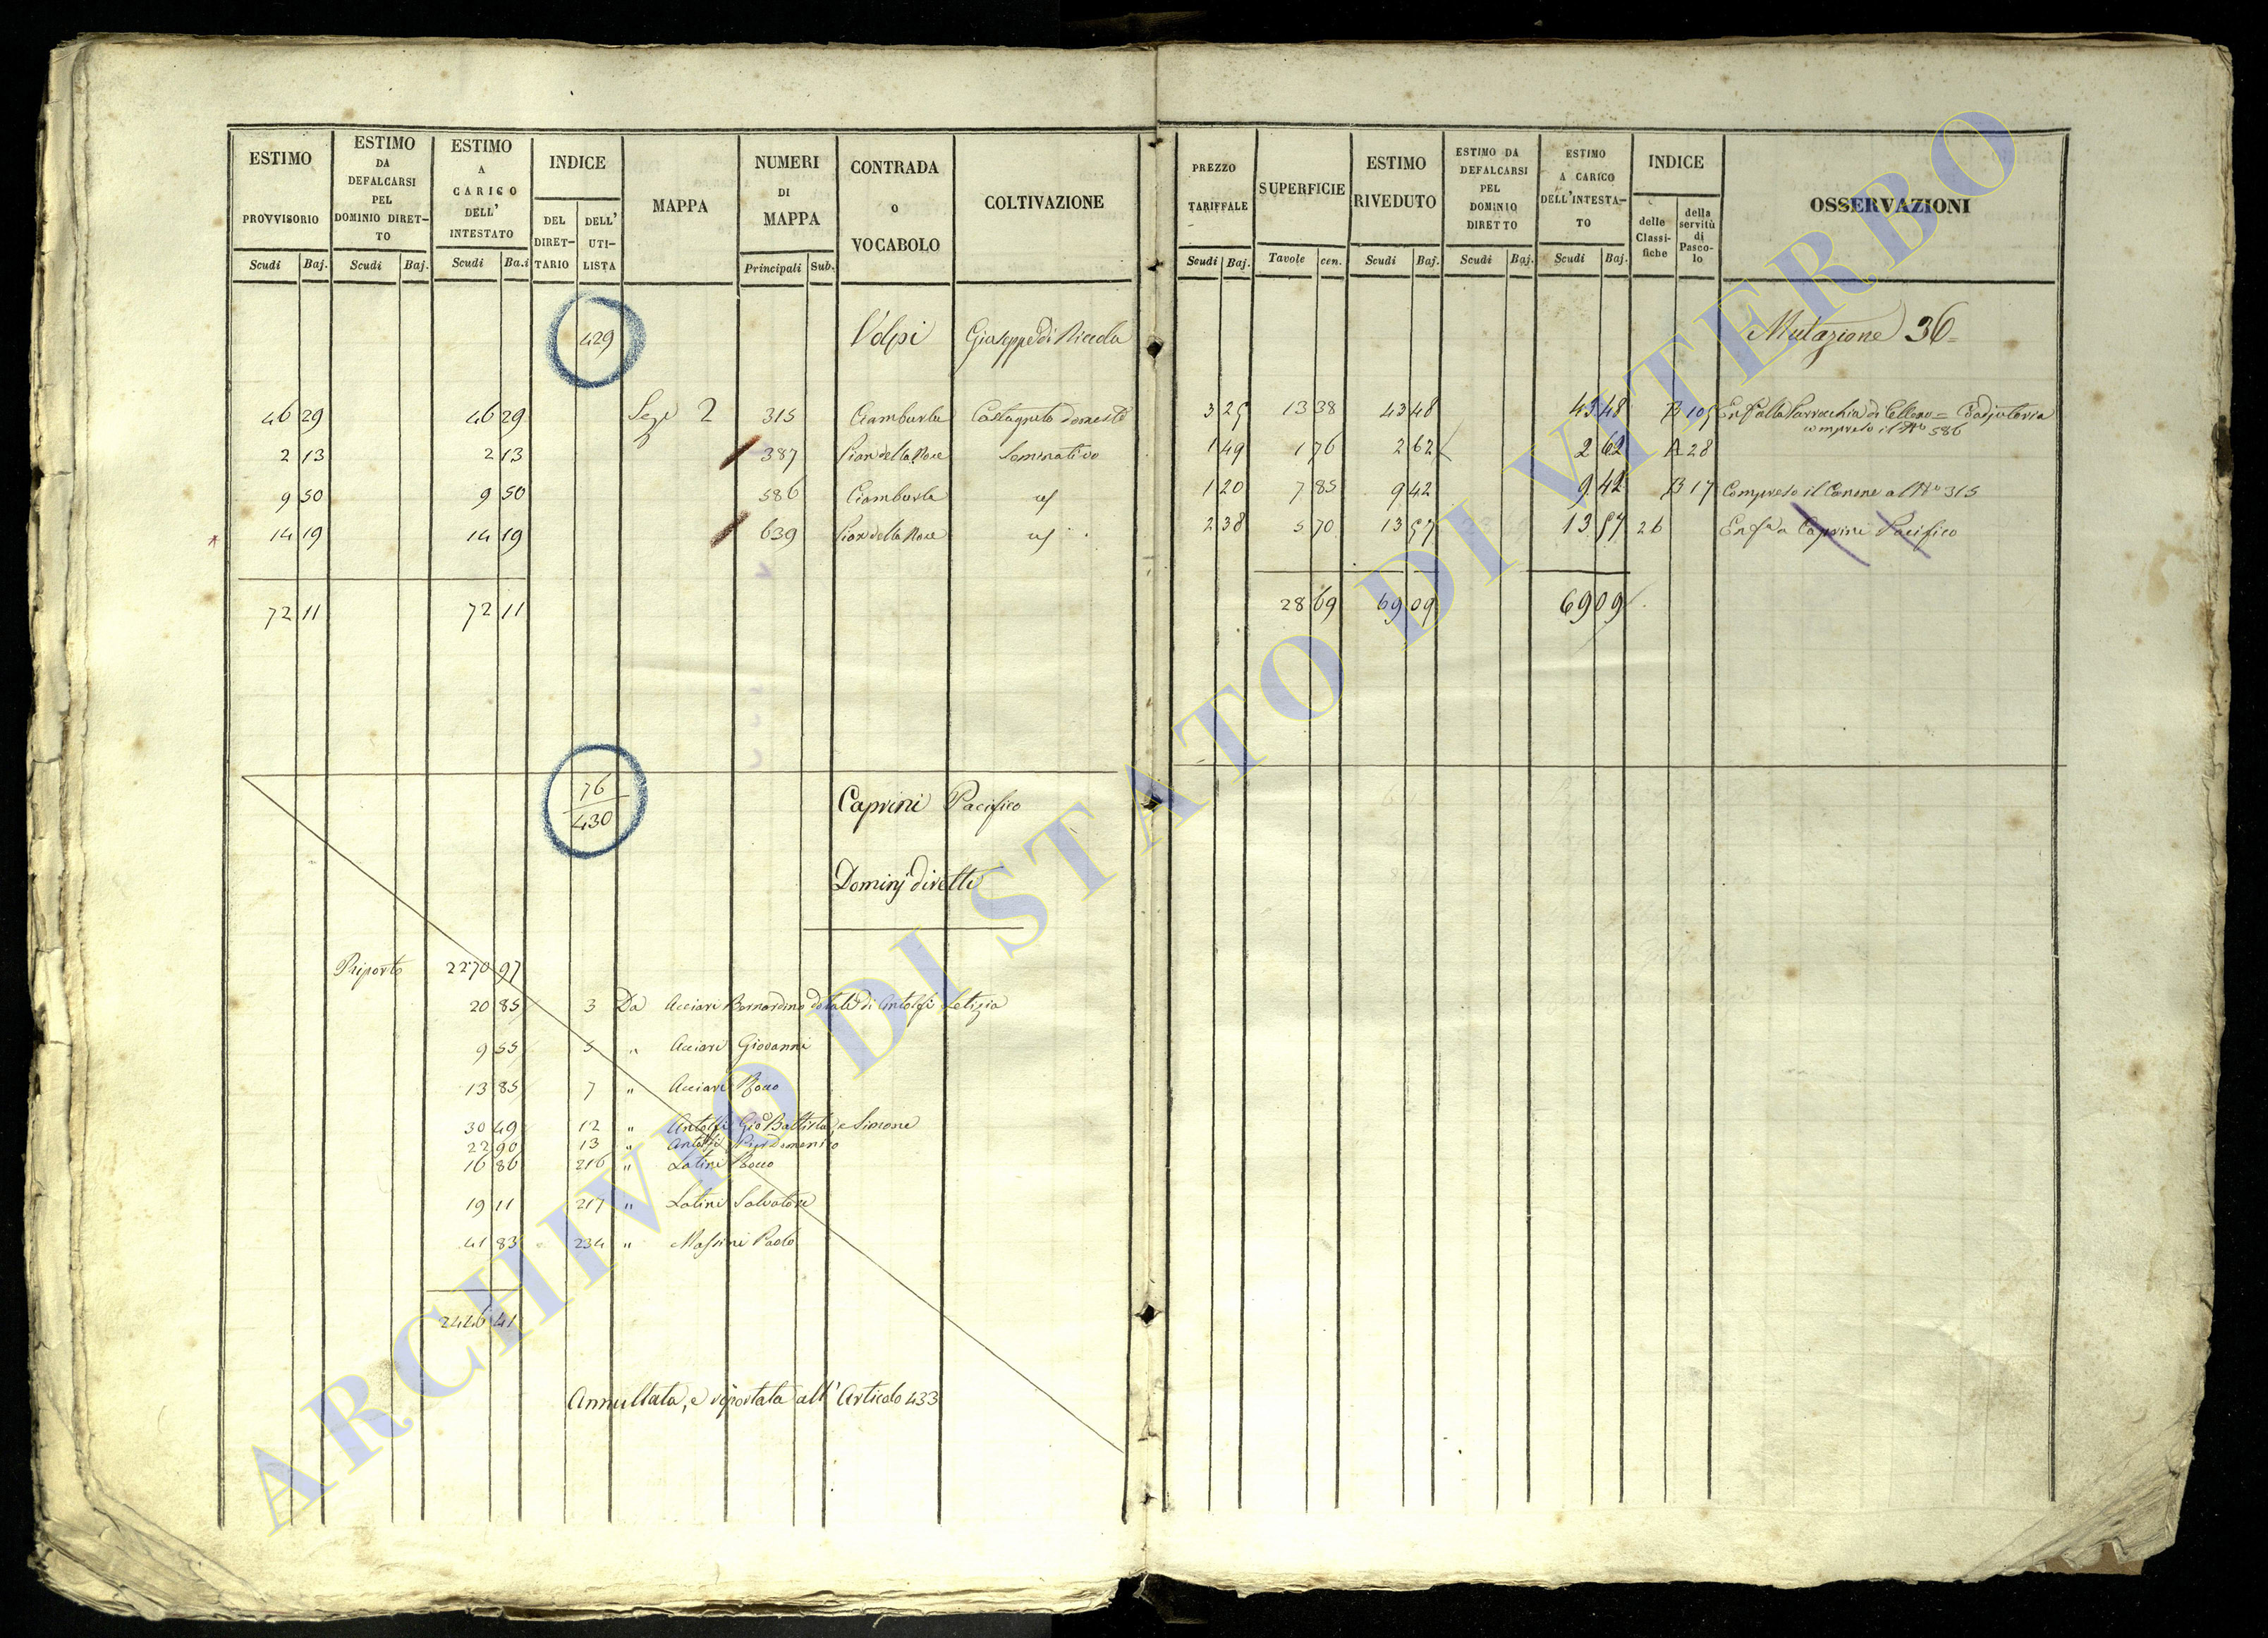 ESTIMO PROVVISORIO
Scudi Baj.
ESTIMO DA DEFALCARSI PEL DOMINIO DIRETTO
Scudi Baj.
ESTIMO A CARICO DELL' INTESTATO
Scudi Ba.i
INDICE
DEL DIRETTARIO
DELL' UTILISTA
MAPPA
NUMERI DI MAPPA
Principali Sub.
CONTRADA O VOCABOLO
COLTIVAZIONE
PREZZO TARIFFALE
Scudi Baj.
SUPERFICIE
Tavole cen.
ESTIMO RIVEDUTO
Scudi Baj.
ESTIMO DA DEFALCARSI PEL DOMINIO DIRETTO
Scudi Baj.
ESTIMO A CARICO DELL'INTESTATO
Scudi Baj.
INDICE
delle Classifiche
della servitù di Pascolo
OSSERVAZIONI
429 Volpi Giuseppe di Nicola Mutazione 36
46 29 46 29 Sez 2 315 Ciamburla Castagneto domest 3 25 13 38 43 48 43 48 B 105 Enf alla Parrocchia di Celleno = Coadjutoria
compreso il No 586
2 13 2 13 387 Pian della Noce Seminativo 1 49 1 76 2 62 2 62 A 28
9 50 9 50 586 Ciamburla id 1 20 7 85 9 42 9 42 B 17 Compreso il Canone al No 315
14 19 14 19 639 Pian della Noce id 2 38 5 70 13 57 13 57 26 Enfa a Caprini Pacifico
72 11 72 11 28 69 69 09 69 09
76
430
Caprini Pacifico
Dominj diretti
Riporto 2270 97
20 85 3 Da Acciari Bernardino dotali di Antolfi Letizia
9 55 5 " Acciari Giovanni
13 85 7 " Acciari Rocco
30 49 12 " Antolfi Gio Battista, e Simone
22 90 13 " Antolfi Pier Domenico
16 86 216 " Latini Rocco
19 11 217 " Latini Salvatore
41 83 234 " Massini Paolo
2446 41
Annullata, e riportata all' Articolo 433
ARCHIVIO DI STATO DI VITERBO